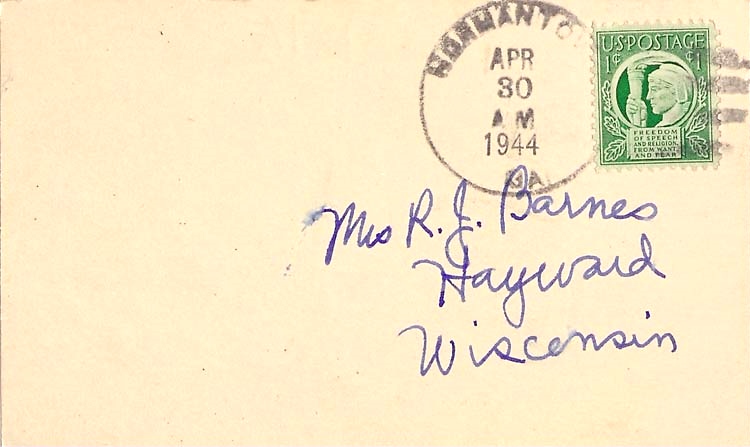 NORMANTO
APR
30
AM
1944
GA.
U.S. POSTAGE
1¢ ¢1
FREEDOM
OF SPEECH
AND RELIGION,
FROM WANT
AND FEAR
Mrs R. J. Barnes
Hayward
Wisconsin